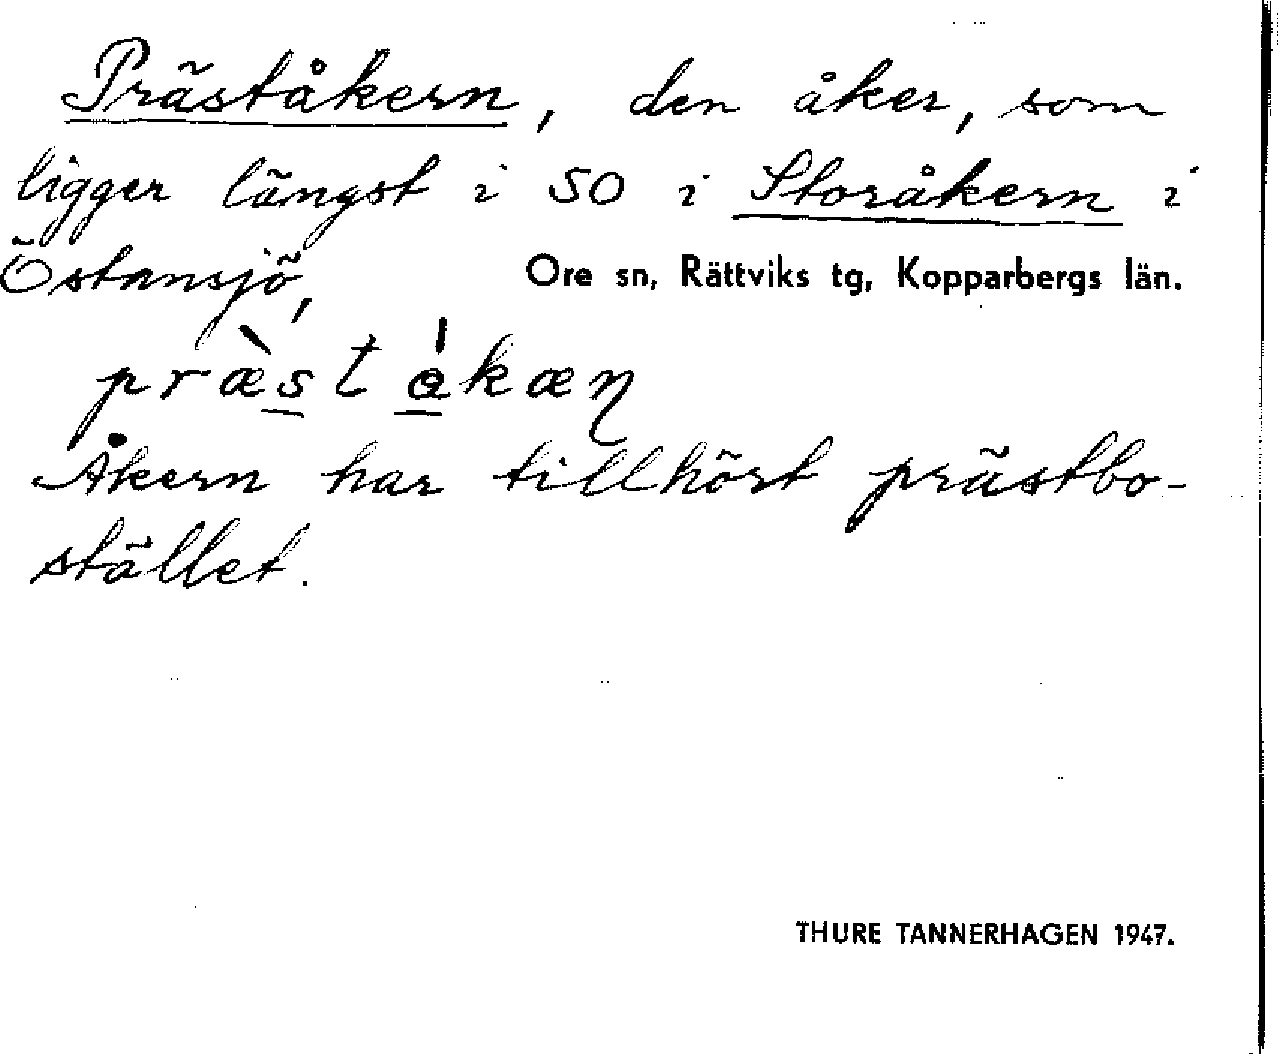 Präståkern, den åker, som
ligger längst i SO i Storåkern i
Östansjö, Ore sn, Rättviks tg, Kopparbergs län.
præ̀st àkæn
Åkern har tillhört prästbo-
stället.
THURE TANNERHAGEN 1947.